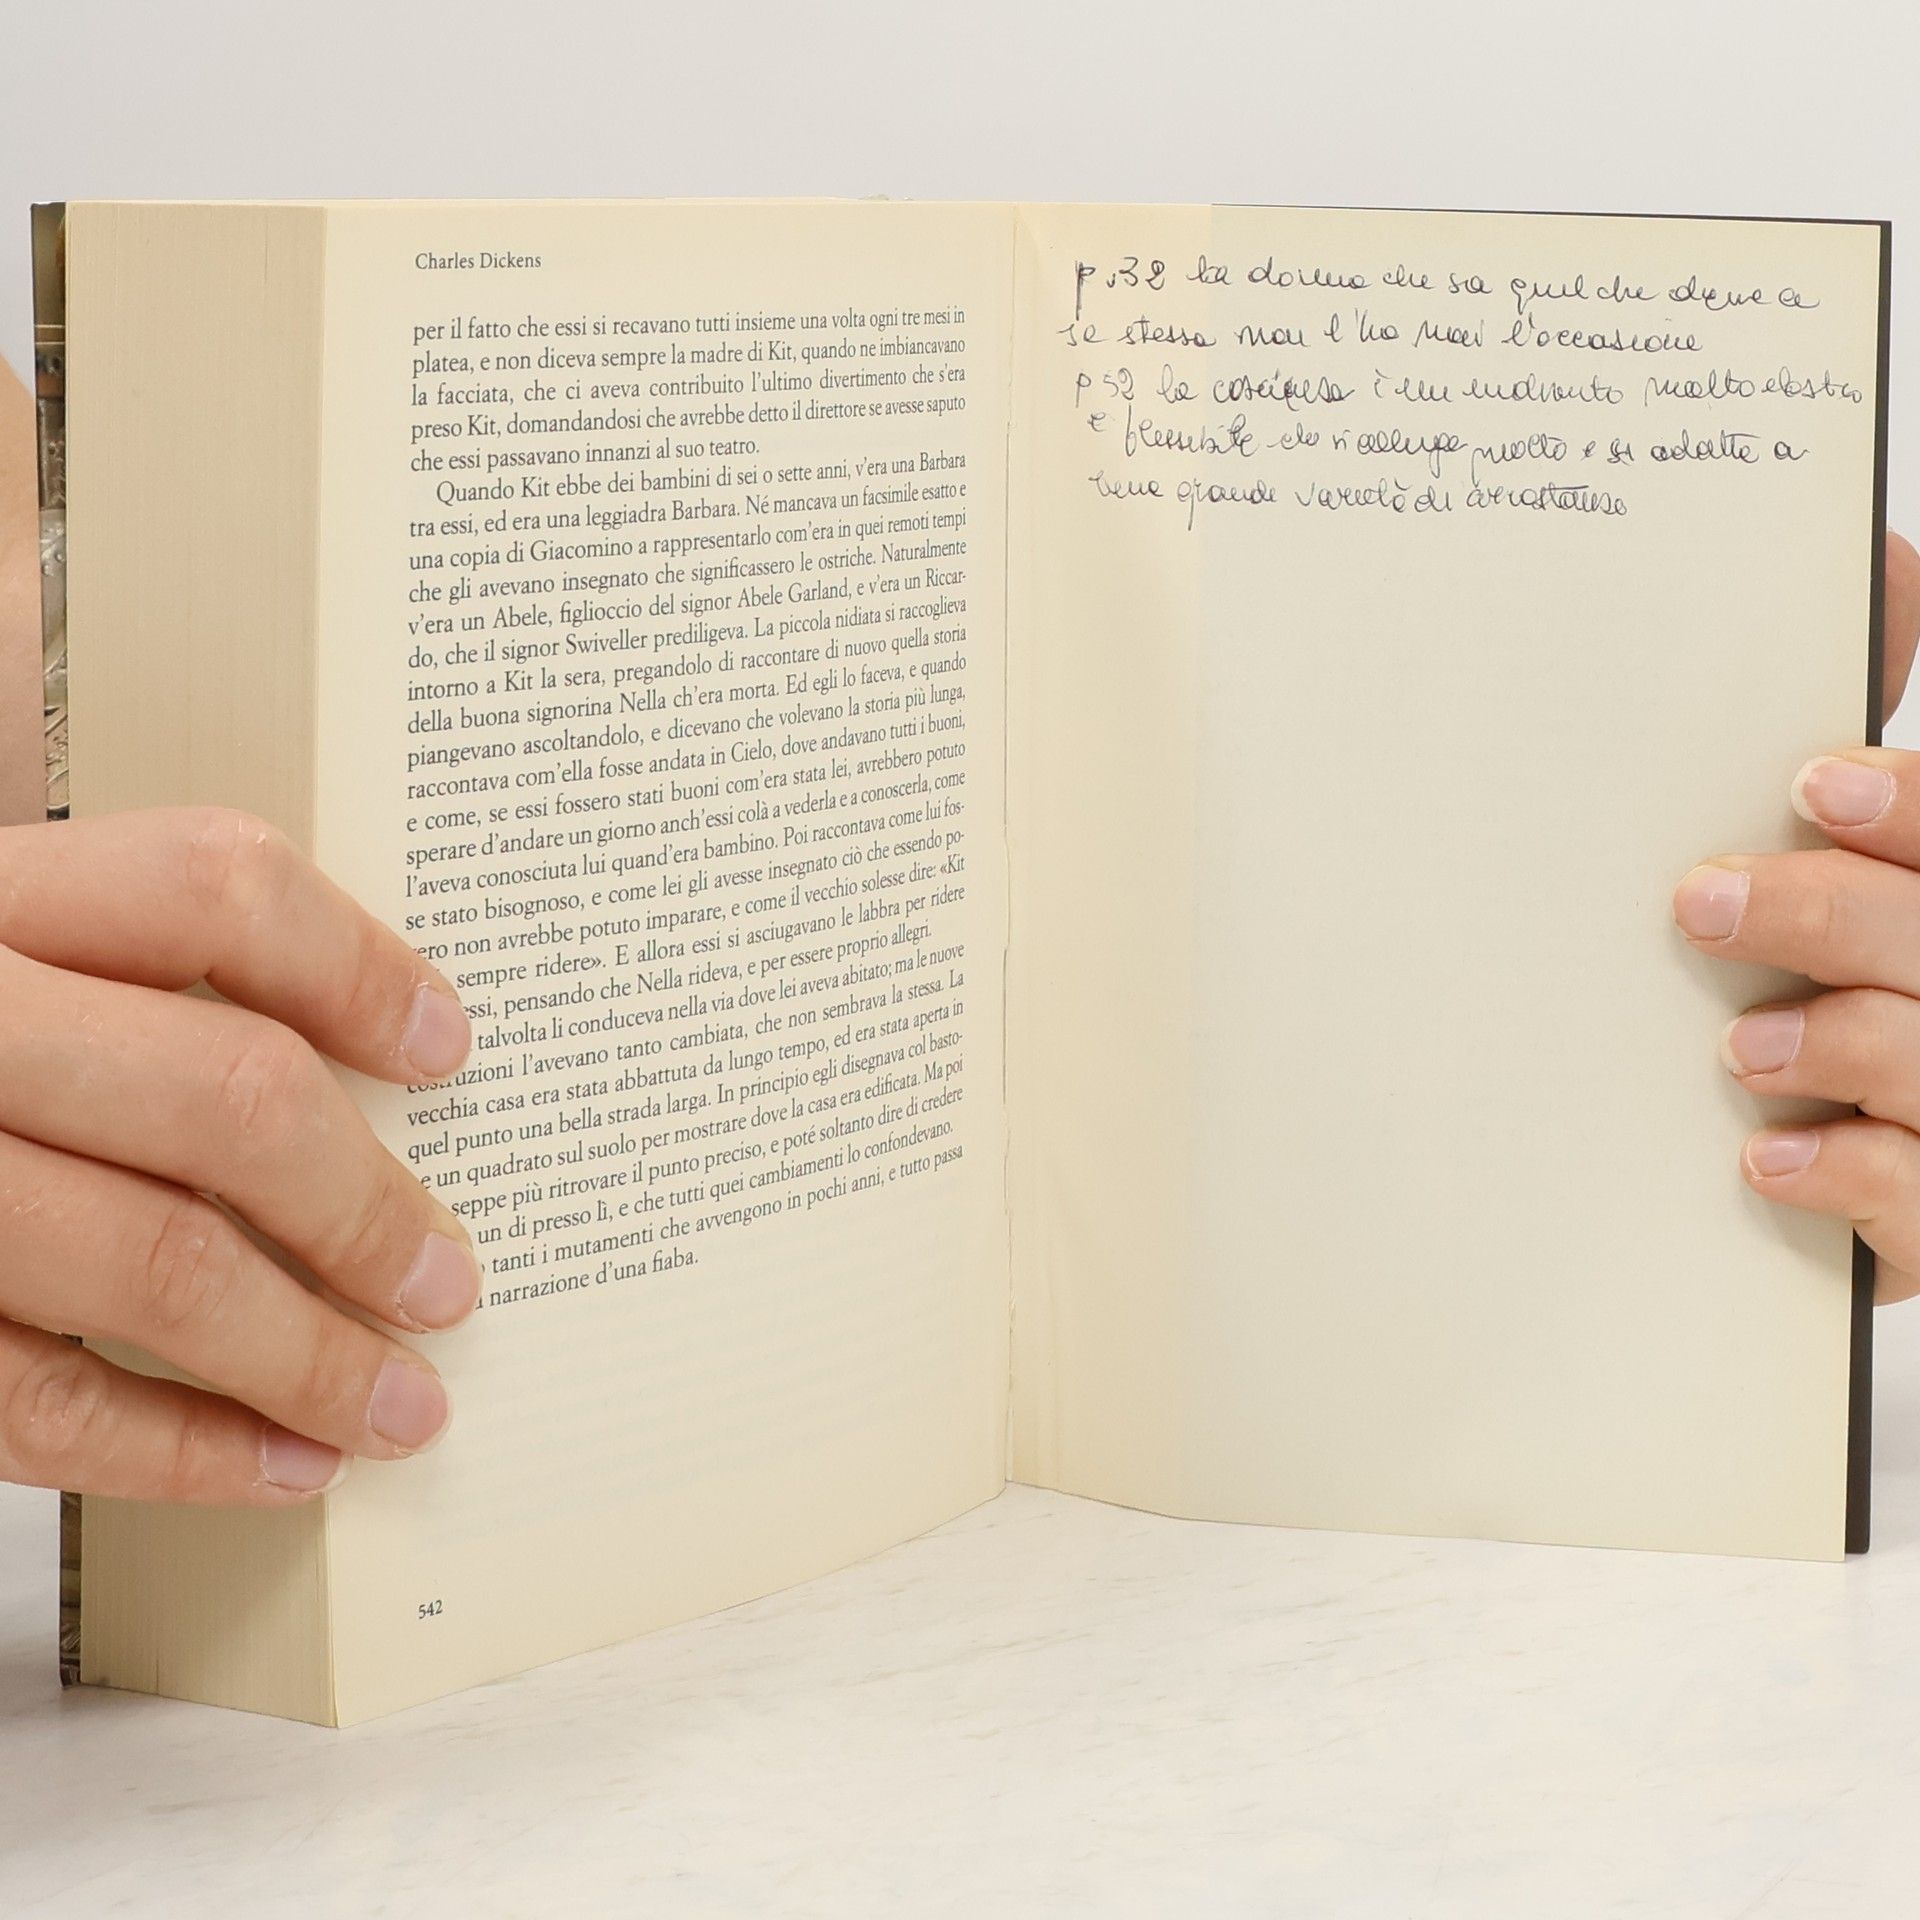 Charles Dickens
per il fatto che essi si recavano tutti insieme una volta ogni tre mesi in
platea, e non diceva sempre la madre di Kit, quando ne imbiancavano
la facciata, che ci aveva contribuito l'ultimo divertimento che s'era
preso Kit, domandandosi che avrebbe detto il direttore se avesse saputo
che essi passavano innanzi al suo teatro.
Quando Kit ebbe dei bambini di sei o sette anni, v'era una Barbara
tra essi, ed era una leggiadra Barbara. Né mancava un facsimile esatto e
una copia di Giacomino a rappresentarlo com'era in quei remoti tempi
che gli avevano insegnato che significassero le ostriche. Naturalmente
v'era un Abele, figlioccio del signor Abele Garland, e v'era un Riccar-
do, che il signor Swiveller prediligeva. La piccola nidiata si raccoglieva
intorno a Kit la sera, pregandolo di raccontare di nuovo quella storia
della buona signorina Nella ch'era morta. Ed egli lo faceva, e quando
piangevano ascoltandolo, e dicevano che volevano la storia più lunga,
raccontava com'ella fosse andata in Cielo, dove andavano tutti i buoni,
e come, se essi fossero stati buoni com'era stata lei, avrebbero potuto
sperare d'andare un giorno anch'essi colà a vederla e a conoscerla, come
l'aveva conosciuta lui quand'era bambino. Poi raccontava come lui fos-
se stato bisognoso, e come lei gli avesse insegnato ciò che essendo po-
vero non avrebbe potuto imparare, e come il vecchio solesse dire: «Kit
sempre ridere». E allora essi si asciugavano le labbra per ridere
essi, pensando che Nella rideva, e per essere proprio allegri.
talvolta li conduceva nella via dove lei aveva abitato; ma le nuove
costruzioni l'avevano tanto cambiata, che non sembrava la stessa. La
vecchia casa era stata abbattuta da lungo tempo, ed era stata aperta in
quel punto una bella strada larga. In principio egli disegnava col basto-
ne un quadrato sul suolo per mostrare dove la casa era edificata. Ma poi
seppe più ritrovare il punto preciso, e poté soltanto dire di credere
un di presso lì, e che tutti quei cambiamenti lo confondevano.
tanti i mutamenti che avvengono in pochi anni, e tutto passa
narrazione d'una fiaba.
542
p.32 la donna che sa quel che deve a
se stessa non l'ha mai l'occasione
p 52 la coscienza è un indumento molto elastico
e flessibile che si allunga molto e si adatta a
grande varietà di circostanze